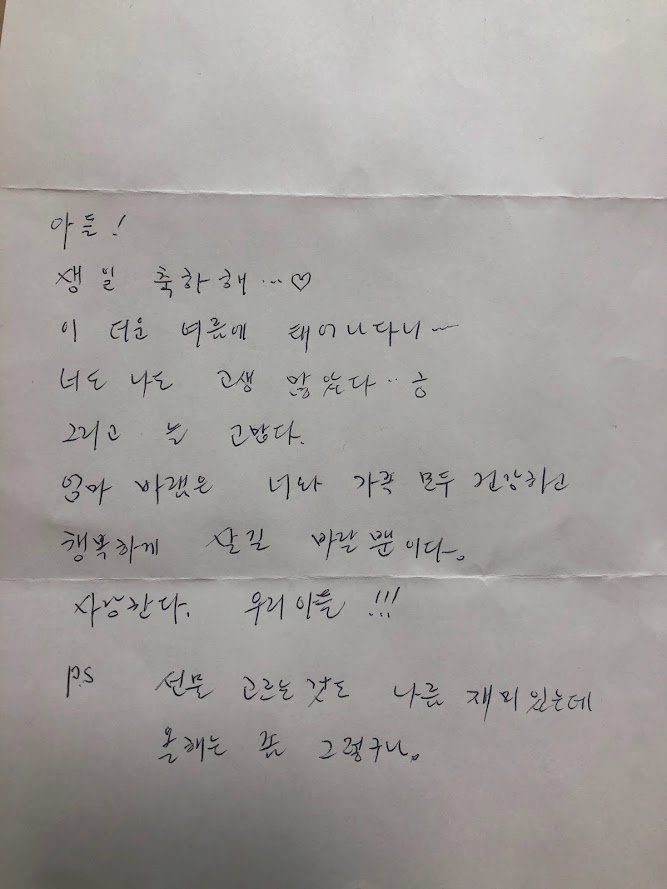 아들!
생일 축하해...♡
이 더운 여름에 태어나다니~
너도 나도 고생 많았다.. ㅎ
그리고 늘 고맙다.
엄마 바램은 너와 가족 모두 건강하고
행복하게 살길 바랄뿐이다.
사랑한다. 우리아들 !!!
p.s 선물 고르는것도 나름 재미있는데
올해는 좀 그렇구나.